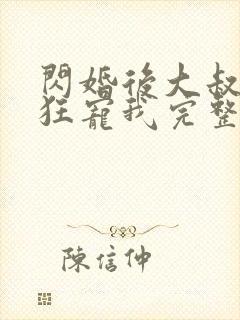 閃婚後大叔
狂寵我完整
陳信仲